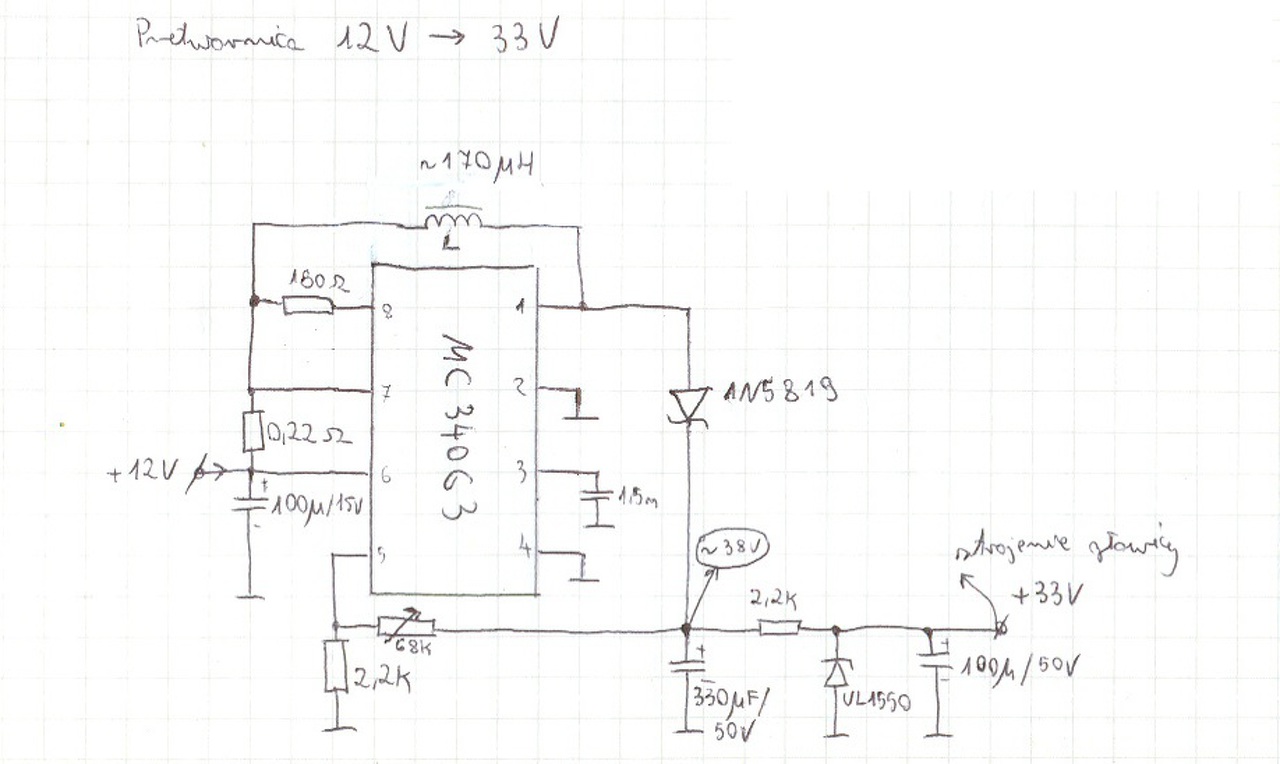 Przetwornica 12V → 33V
~170μH
L
180Ω
8
1
MC34063
7
2
1N5819
0,22Ω
+12V
6
3
+
100μ/15V
-
1,5n
5
4
~38V
strojenie głowicy
+33V
2,2K
68K
2,2K
+
-
330μF/
50V
UL1550
+
-
100μ/50V